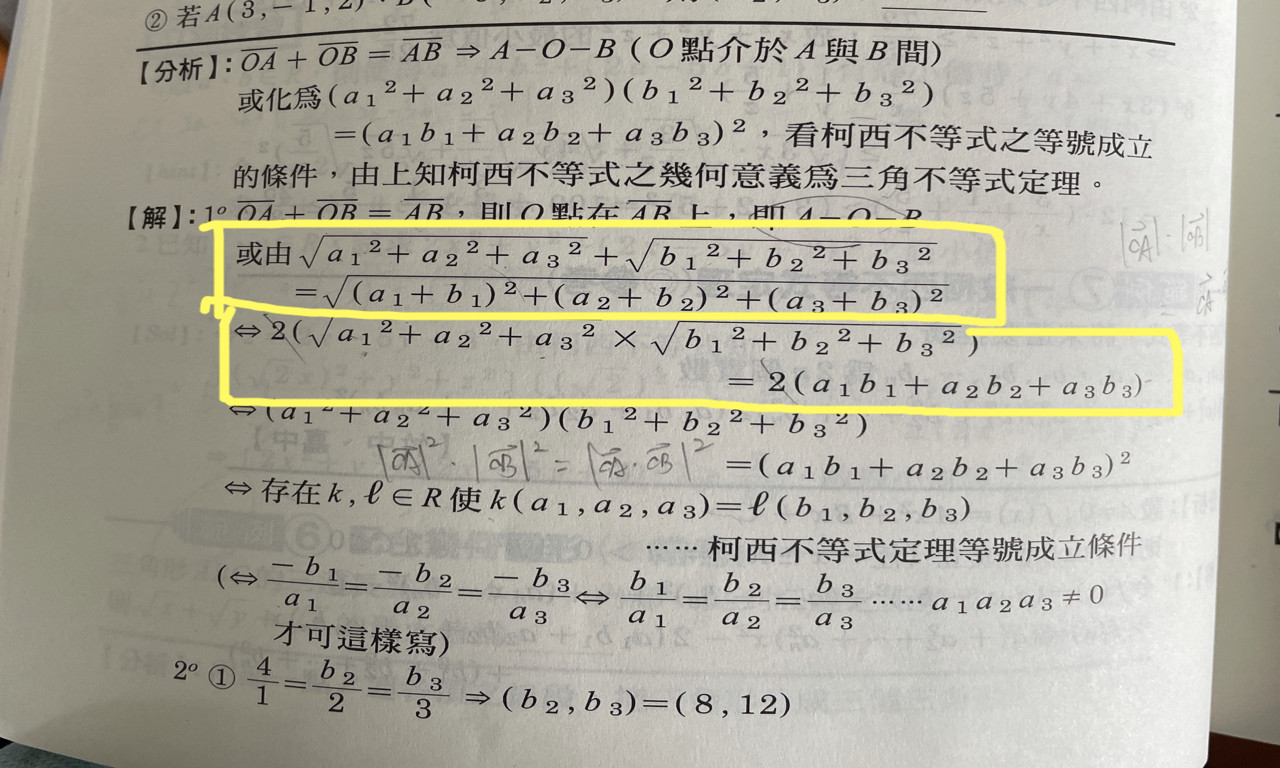 ② 若A(3,－1,2)、B(
【分析】：OA＋OB＝AB ⇒ A－O－B（O點介於A與B間）
或化爲(a₁²＋a₂²＋a₃²)(b₁²＋b₂²＋b₃²)
＝(a₁b₁＋a₂b₂＋a₃b₃)²，看柯西不等式之等號成立
的條件，由上知柯西不等式之幾何意義爲三角不等式定理。
【解】：1° OA＋OB＝AB，則O點在AB上，即A－O－B
或由√(a₁²＋a₂²＋a₃²)＋√(b₁²＋b₂²＋b₃²)
＝√((a₁＋b₁)²＋(a₂＋b₂)²＋(a₃＋b₃)²)
|OA|·|OB|
⇔2(√(a₁²＋a₂²＋a₃²)×√(b₁²＋b₂²＋b₃²))
＝2(a₁b₁＋a₂b₂＋a₃b₃)
⇔(a₁²＋a₂²＋a₃²)(b₁²＋b₂²＋b₃²)
|OA|²·|OB|²＝|OA·OB|² ＝(a₁b₁＋a₂b₂＋a₃b₃)²
⇔存在k,ℓ∈R使k(a₁,a₂,a₃)＝ℓ(b₁,b₂,b₃)
……柯西不等式定理等號成立條件
(⇔－b₁/a₁＝－b₂/a₂＝－b₃/a₃⇔b₁/a₁＝b₂/a₂＝b₃/a₃……a₁a₂a₃≠0
才可這樣寫)
2° ① 4/1＝b₂/2＝b₃/3 ⇒(b₂,b₃)＝(8,12)